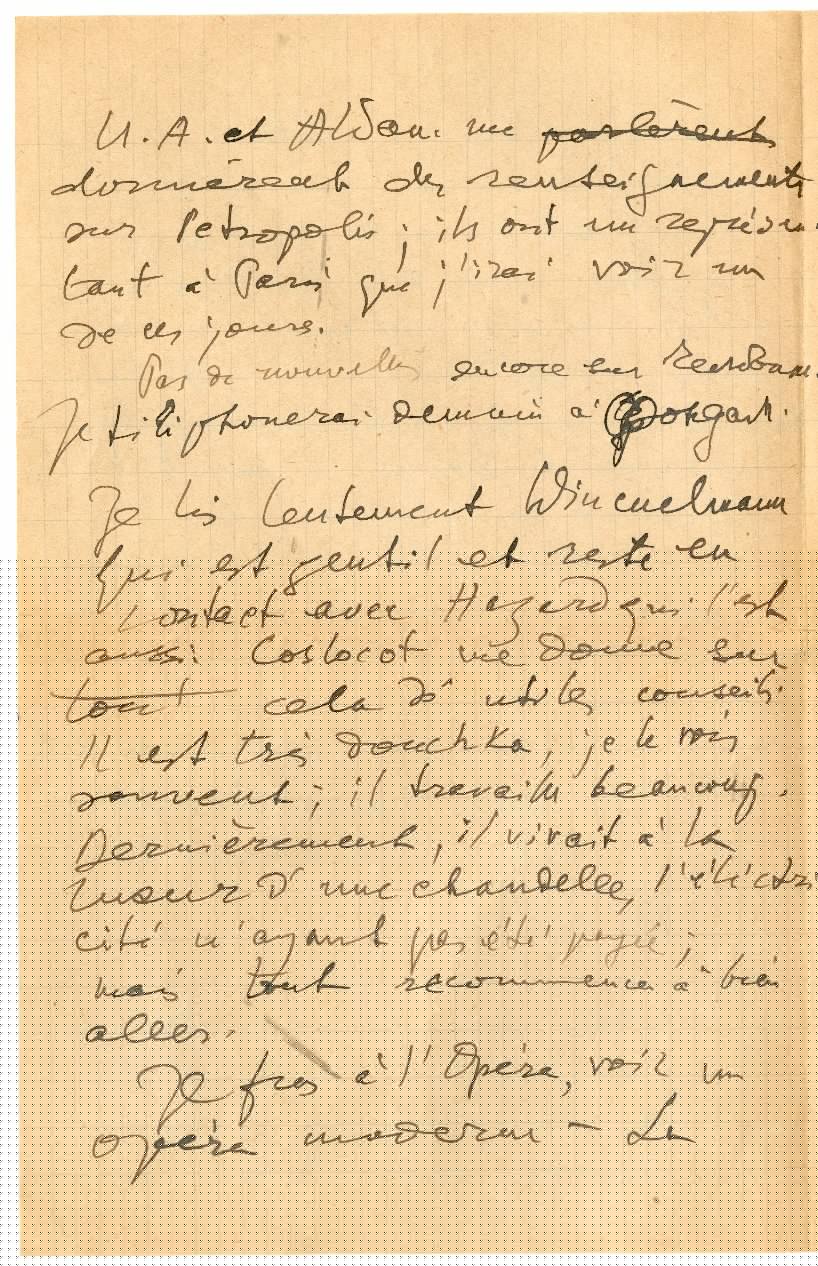 U. A. et Aldan. me parlèrent
donnèrent des renseignements
sur Petropolis ; ils ont un représen-
tant à Paris que j'irai voir un
de ces jours.
Pas de nouvelles encore sur
Je téléphonerai demain à
Je lis lentement Wincuelmann
qui est gentil et reste en
contact avec Hazard qui l'est
aussi. Coslocot me donne sur
tout cela d'utiles conseils.
Il est très douchka, je le vois
souvent ; il travaille beaucoup.
Dernièrement, il vivait à la
lueur d'une chandelle, l'électri
cité n'ayant pas été payée ;
mais tout recommence à bien
aller.
Je fus à l'Opéra, voir un
opéra moderne — La